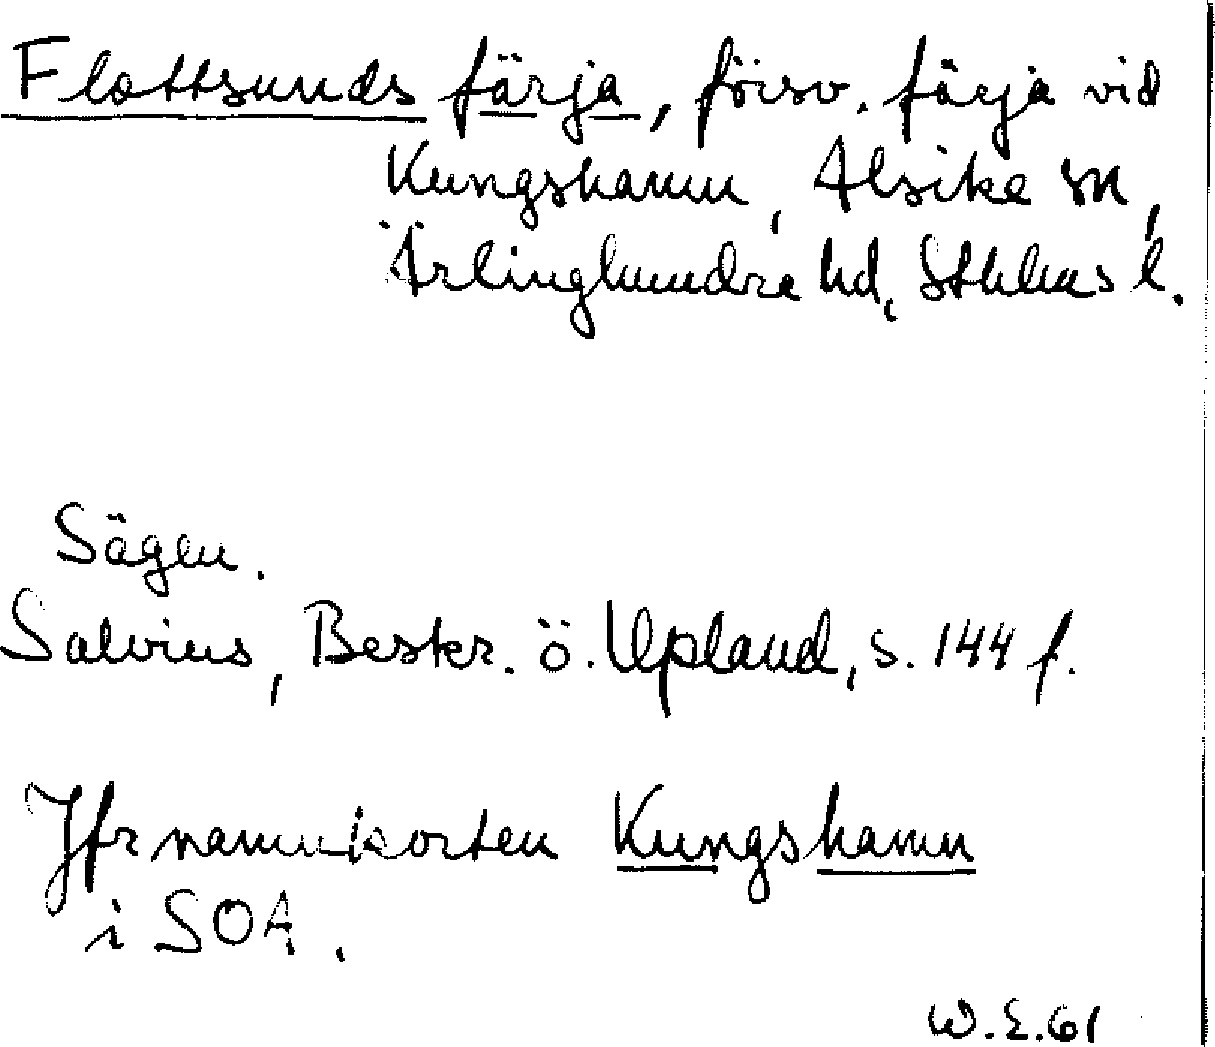 Flottsunds färja, försv. färja vid
Kungshamn, Alsike sn,
Ärlinghundra hd, Sthlms l.
Sägen.
Salvius, Beskr. ö. Upland, s. 144 f.
Jfr namnkorten Kungshamn
i SOA.
W.E.61